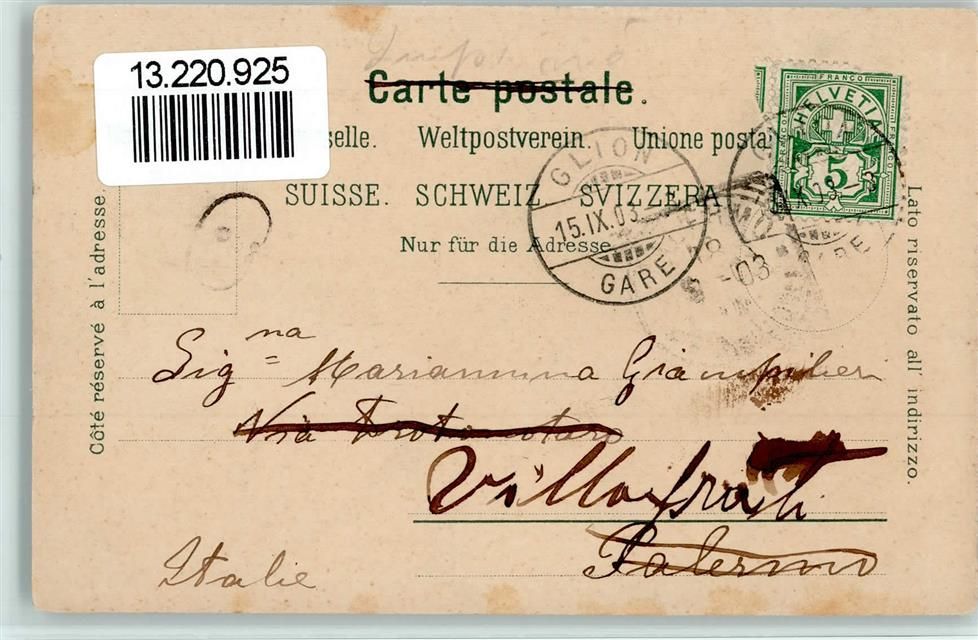 13.220.925
Carte postale.
selle. Weltpostverein. Unione posta
SUISSE. SCHWEIZ. SVIZZERA
Nur für die Adresse
Côté réservé à l'adresse.
Lato riservato all' indirizzo.
FRANCO
HELVETIA
5
GLION
15.IX.03
GARE
03
Sig.na Mariannina Giampilieri
Via Protonotaro
Villafrati
Palermo
Italie